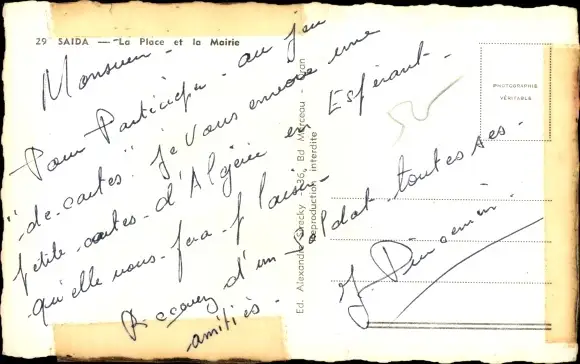 29 SAIDA — La Place et la Mairie
Monsieur -
Pour Participer - au jeu
"de-cartes" je vous envoie une
petite cartes - d'Algérie en Espérant -
qu'elle vous - fera - plaisir -
Recevez d'un Soldat - toutes ses -
amitiés -
PHOTOGRAPHIE
VÉRITABLE
Ed. Alexandre - 36, Bd Marceau - Oran
Reproduction interdite